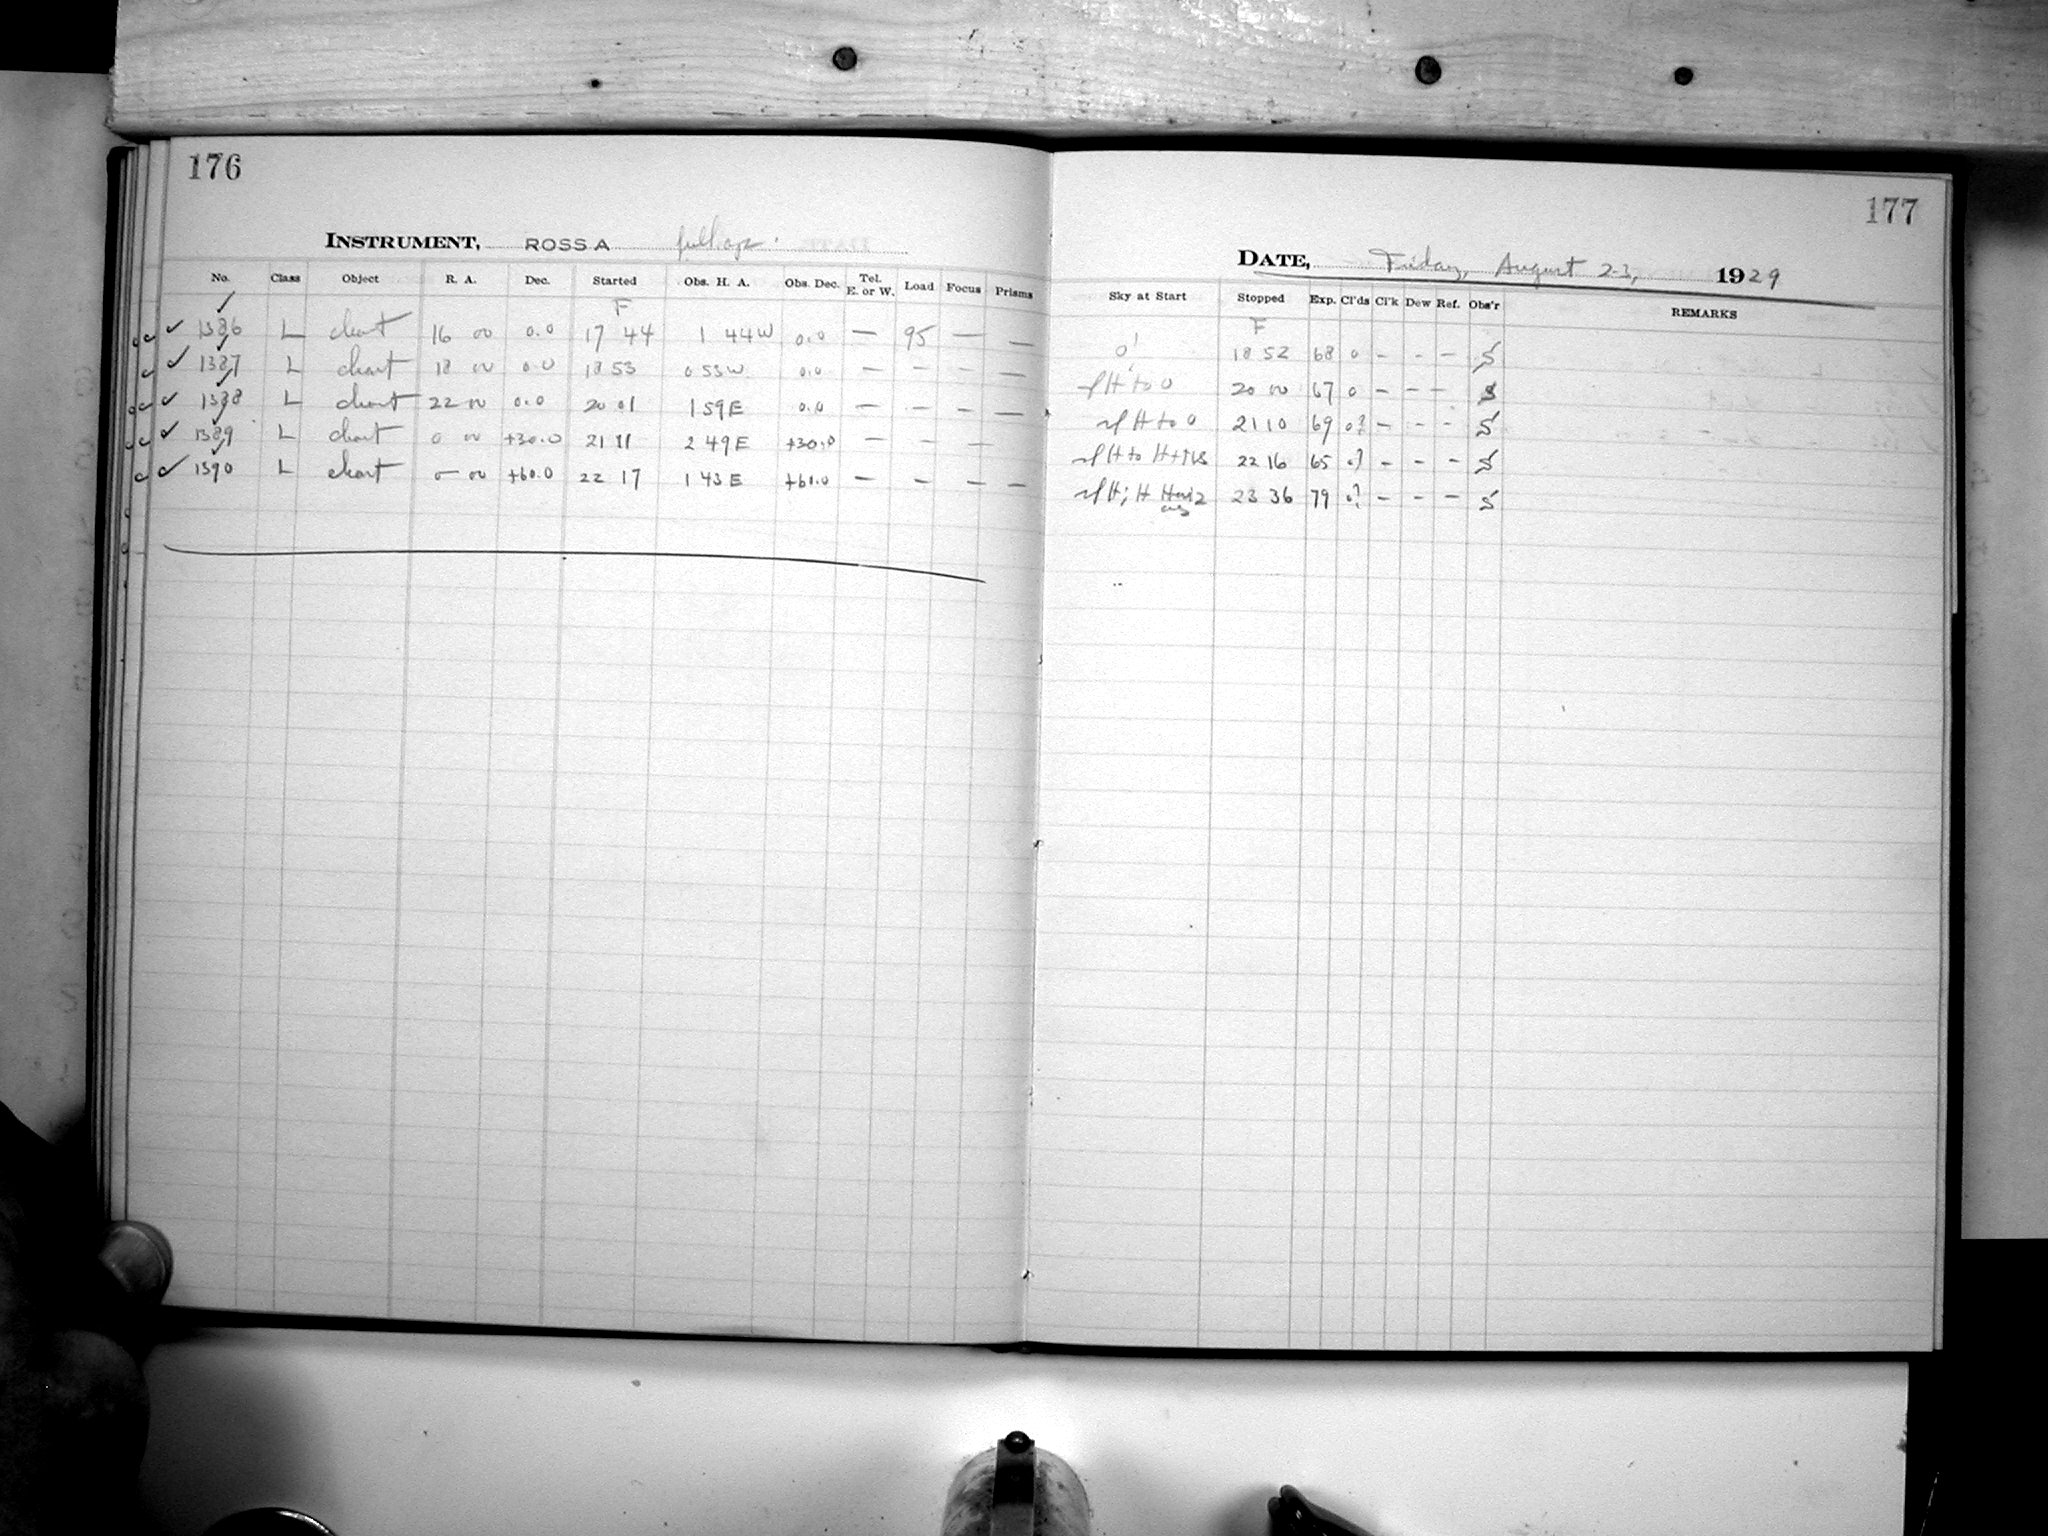 176
INSTRUMENT, ROSS A full ap.
No. Class Object R. A. Dec. Started Obs. H. A. Obs. Dec. Tel. E. or W. Load Focus Prisms
F
1386 L chart 16 00 0.0 17 44 1 44W 0.0 — 95 — —
1387 L chart 18 00 0.0 18 53 0 53W 0.0 — — — —
1388 L chart 22 00 0.0 20 01 1 59E 0.0 — — — —
1389 L chart 0 00 +30.0 21 11 2 49E +30.0 — — —
1390 L chart 0 00 +60.0 22 17 1 43E +60.0 — — — —
177
DATE, Friday, August 23, 1929
Sky at Start Stopped Exp. Cl'ds Cl'k Dew Ref. Obs'r REMARKS
F
0! 18 52 68 0 — — — S
H to 0 20 00 67 0 — — — S
H to 0 21 10 69 0? — — — S
H to 22 16 65 0? — — — S
H; H 23 36 79 0? — — — S